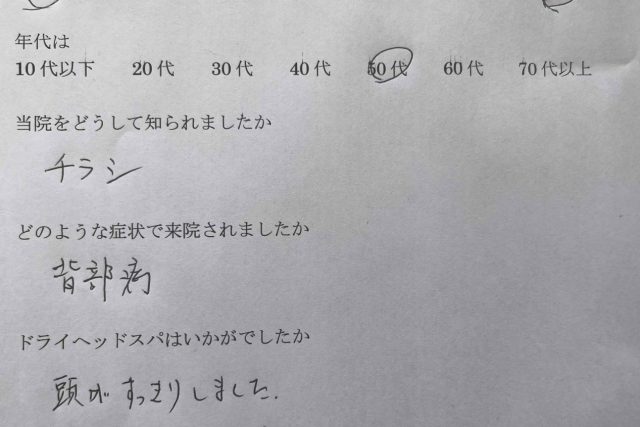 年代は
10代以下 20代 30代 40代 50代 60代 70代以上
当院をどうして知られましたか
チラシ
どのような症状で来院されましたか
背部痛
ドライヘッドスパはいかがでしたか
頭がすっきりしました.